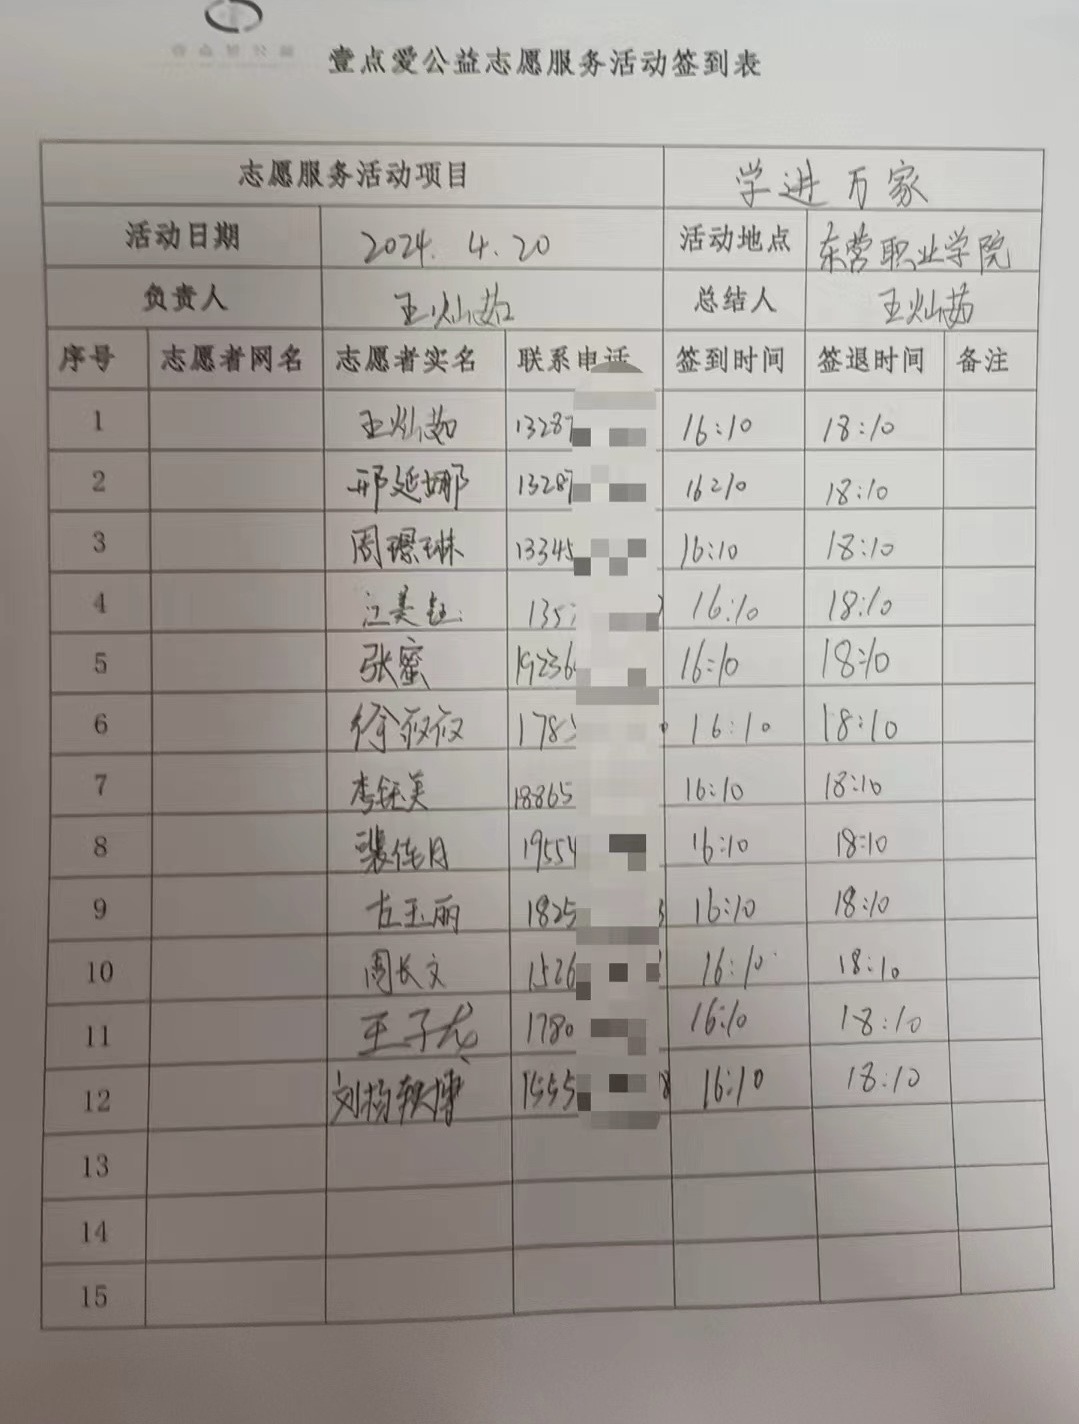 壹点爱公益志愿服务活动签到表
志愿服务活动项目 学进万家
活动日期 2024.4.20 活动地点 东营职业学院
负责人 王灿茹 总结人 王灿茹
序号 志愿者网名 志愿者实名 联系电话 签到时间 签退时间 备注
1 王灿茹 13287 16:10 18:10
2 邢延娜 13287 16:10 18:10
3 周璟琳 13345 16:10 18:10
4 江美钰 135 16:10 18:10
5 张蜜 19236 16:10 18:10
6 徐筱筱 1783 16:10 18:10
7 李钰美 18865 16:10 18:10
8 裴佳月 19554 16:10 18:10
9 古玉丽 1825 16:10 18:10
10 周长文 1526 16:10 18:10
11 王子龙 1780 16:10 18:10
12 刘杨轶博 1555 8 16:10 18:10
13
14
15